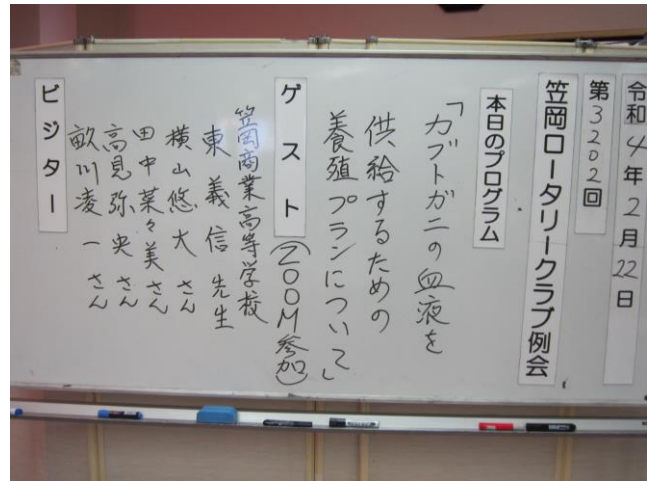 令和4年2月22日
第3202回
笠岡ロータリークラブ例会
本日のプログラム
「カブトガニの血液を
供給するための
養殖プランについて」
ゲスト（ZOOM参加）
笠岡商業高等学校
東義信先生
横山悠大さん
田中菜々美さん
高見弥央さん
畝川凌一さん
ビジター